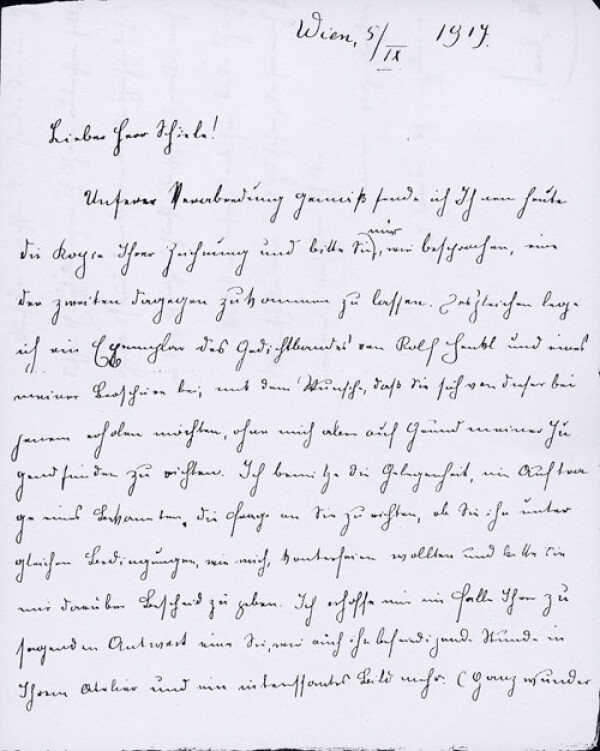 Wien, 5/IX 1917.
Lieber Herr Schiele!
Unserer Verabredung gemäß sende ich Ihnen heute
die Kopie Ihrer Zeichnung und bitte Sie, mir wie besprochen, eine
der zweiten dagegen zukommen zu lassen. Desgleichen lege
ich ein Exemplar des Gedichtbandes von Rolf Henkl und eines
meiner Broschüren bei, mit dem Wunsche, daß Sie sich von dieser bei
jenem erholen möchten, ohne mich aber auf Grund meiner Ju
gendsünden zu richten. Ich benütze die Gelegenheit, im Auftra
ge eines Bekannten, die Frage an Sie zu richten, ob Sie ihn unter
gleichen Bedingungen, wie mich, konterfeien wollten und bitte Sie
mir darüber Bescheid zu geben. Ich erhoffe mir im Falle Ihrer zu
sagenden Antwort eine Sie, wie auch ihn befriedigende Stunde in
Ihrem Atelier und ein interessantes Bild mehr. (Ganz wunder